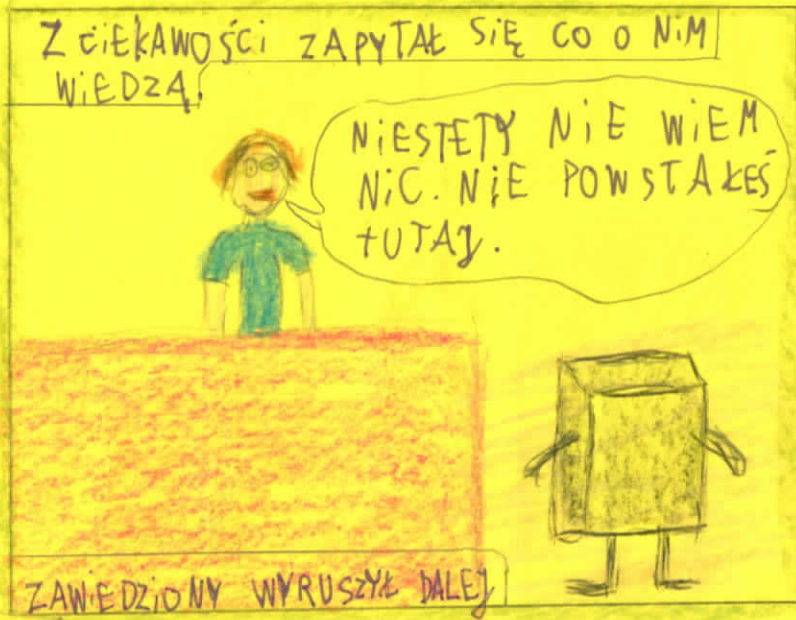 Z CiEKAWOŚCi ZAPYTAŁ SiĘ CO O NiM
WiEDZĄ.
NiESTETY NiE WiEM
NiC. NiE POWSTAŁEŚ
tUTAJ.
ZAWiEDZiONY WYRUSZYŁ DALEJ